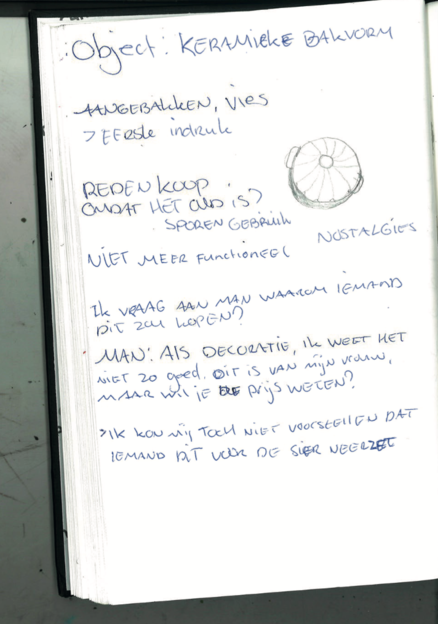 Object: KERAMIEKE BAKVORM
AANGEBAKKEN, vies
> EERste indruk
REDEN KOOP
OMDAT HET OUD is?
SPOREN GEBRUIK
NOSTALGIES
NIET MEER functioneel
Ik VRAAG AAN MAN WAAROM IEMAND
DIT ZOU KOPEN?
MAN: Als DECORATIE, ik WEET HET
NIET ZO goed. Dit is VAN mijn vrouw,
MAAR wil je DE prijs WETEN?
>Ik kon mij Toch NIET VOORSTELLEN DAT
IEMAND DIT VOOR DE SIER NEERZET